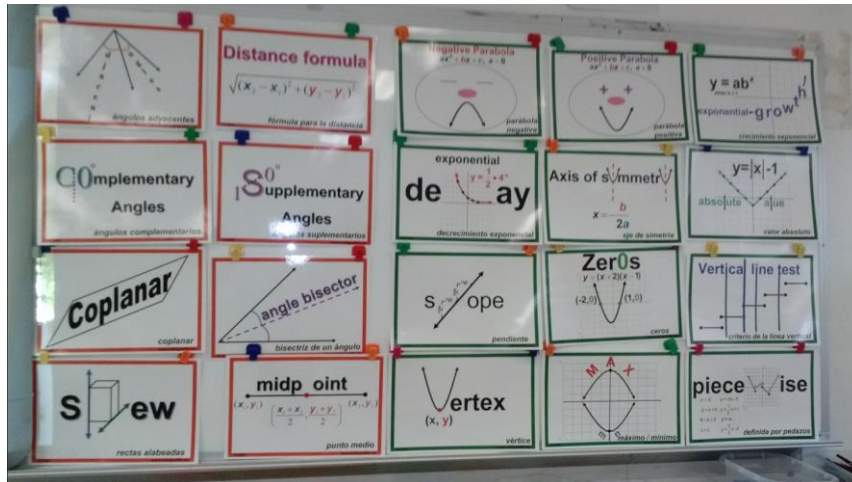 ángulos adyacentes
Distance formula
√(x₂ − x₁)² + (y₂ − y₁)²
fórmula para la distancia
Negative Parabola
ax² + bx + c, a < 0
parábola
negativa
Positive Parabola
ax² + bx + c, a > 0
parábola
positiva
y = abˣ
exponential growth
crecimiento exponencial
COmplementary
Angles
ángulos complementarios
1S0°upplementary
Angles
ángulos suplementarios
exponential
de ay
decrecimiento exponencial
Axis of symmetry
x = b
2a
eje de simetría
y=|x|-1
absolute alue
valor absoluto
Coplanar
coplanar
angle bisector
bisectriz de un ángulo
s ope
pendiente
Zer0s
y = (x + 2)(x − 1)
(-2,0) (1,0)
ceros
Vertical line test
criterio de la línea vertical
S ew
rectas alabeadas
midp oint
punto medio
Vertex
(x, y)
vértice
MAX
máximo / mínimo
piece ise
definida por pedazos